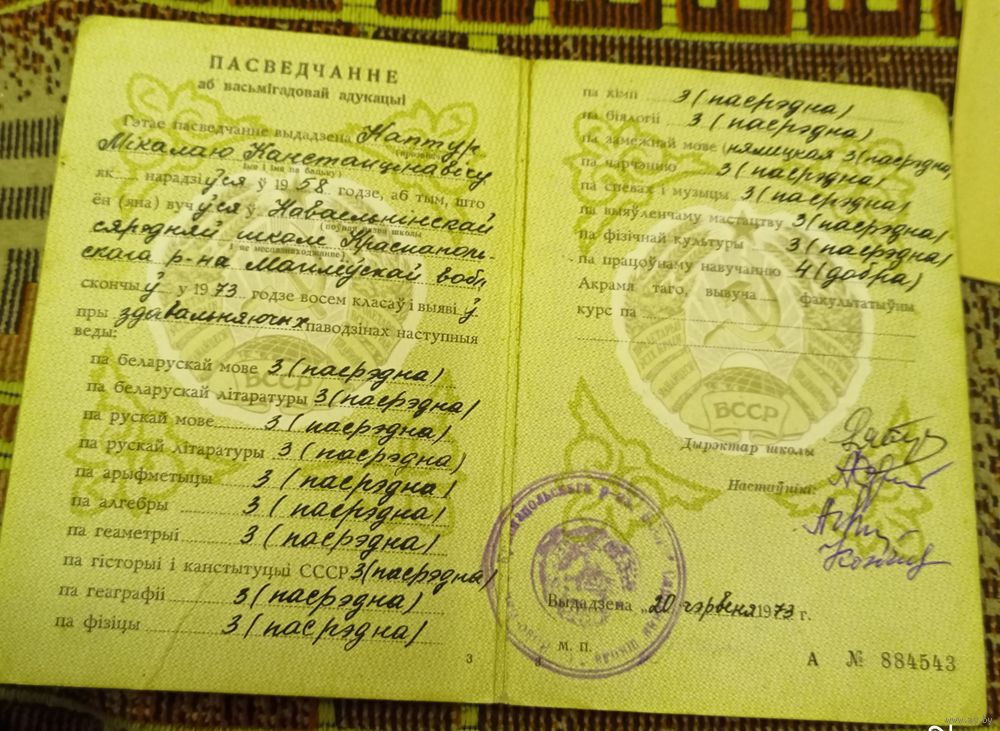 ПАСВЕДЧАННЕ
аб васьмігадовай адукацыі
Гэтае пасведчанне выдадзена Каптур
(прозвішча,
Міхалаю Канстанцінавічу
імя і імя па бацьку)
як нарадзіўся ў 1958 годзе, аб тым, што
ён (яна) вучўся ў Навасельнінскай
(поўная назва школы
сярэдняй школе Краснаполь-
і яе месцазнаходжанне)
скага р-на Магілёўскай вобл
скончыў у 1973 годзе восем класаў і выявіў
пры здавальняючых паводзінах наступныя
веды:
па беларускай мове 3 (пасрэдна)
па беларускай літаратуры 3 (пасрэдна)
па рускай мове 3 (пасрэдна)
па рускай літаратуры 3 (пасрэдна)
па арыфметыцы 3 (пасрэдна)
па алгебры 3 (пасрэдна)
па геаметрыі 3 (пасрэдна)
па гісторыі і канстытуцыі СССР 3 (пасрэдна)
па геаграфіі 3 (пасрэдна)
па фізіцы 3 (пасрэдна)
3
БССР
па хіміі 3 (пасрэдна)
па біялогіі 3 (пасрэдна)
па замежнай мове (нямецкая 3 (пасрэдна)
па чарчэнню 3 (пасрэдна)
па спевах і музыцы 3 (пасрэдна)
па выяўленчаму мастацтву 3 (пасрэдна)
па фізічнай культуры 3 (пасрэдна)
па працоўнаму навучанню 4 (добра)
Акрамя таго, вывуча факультатыўны
курс па
БССР
Дырэктар школы
Настаўнікі:
Выдадзена „20 чэрвеня 1973 г.
М. П.
А № 884543
www.ay.by